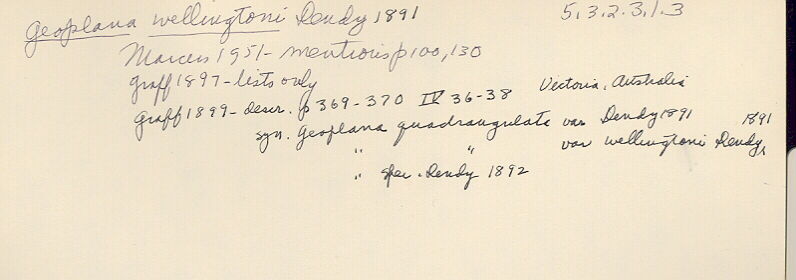 Geoplana wellingtoni Dendy 1891 5.3.2.3.1.3
Marcus 1951 - mentions p100,130
Graff 1897 - lists only
Graff 1899 - descr. p 369-370 IV 36-38 Victoria, Australia
syn. Geoplana quadrangulata var Dendy 1891
" " var wellingtoni Dendy, 1891
" spec. Dendy 1892